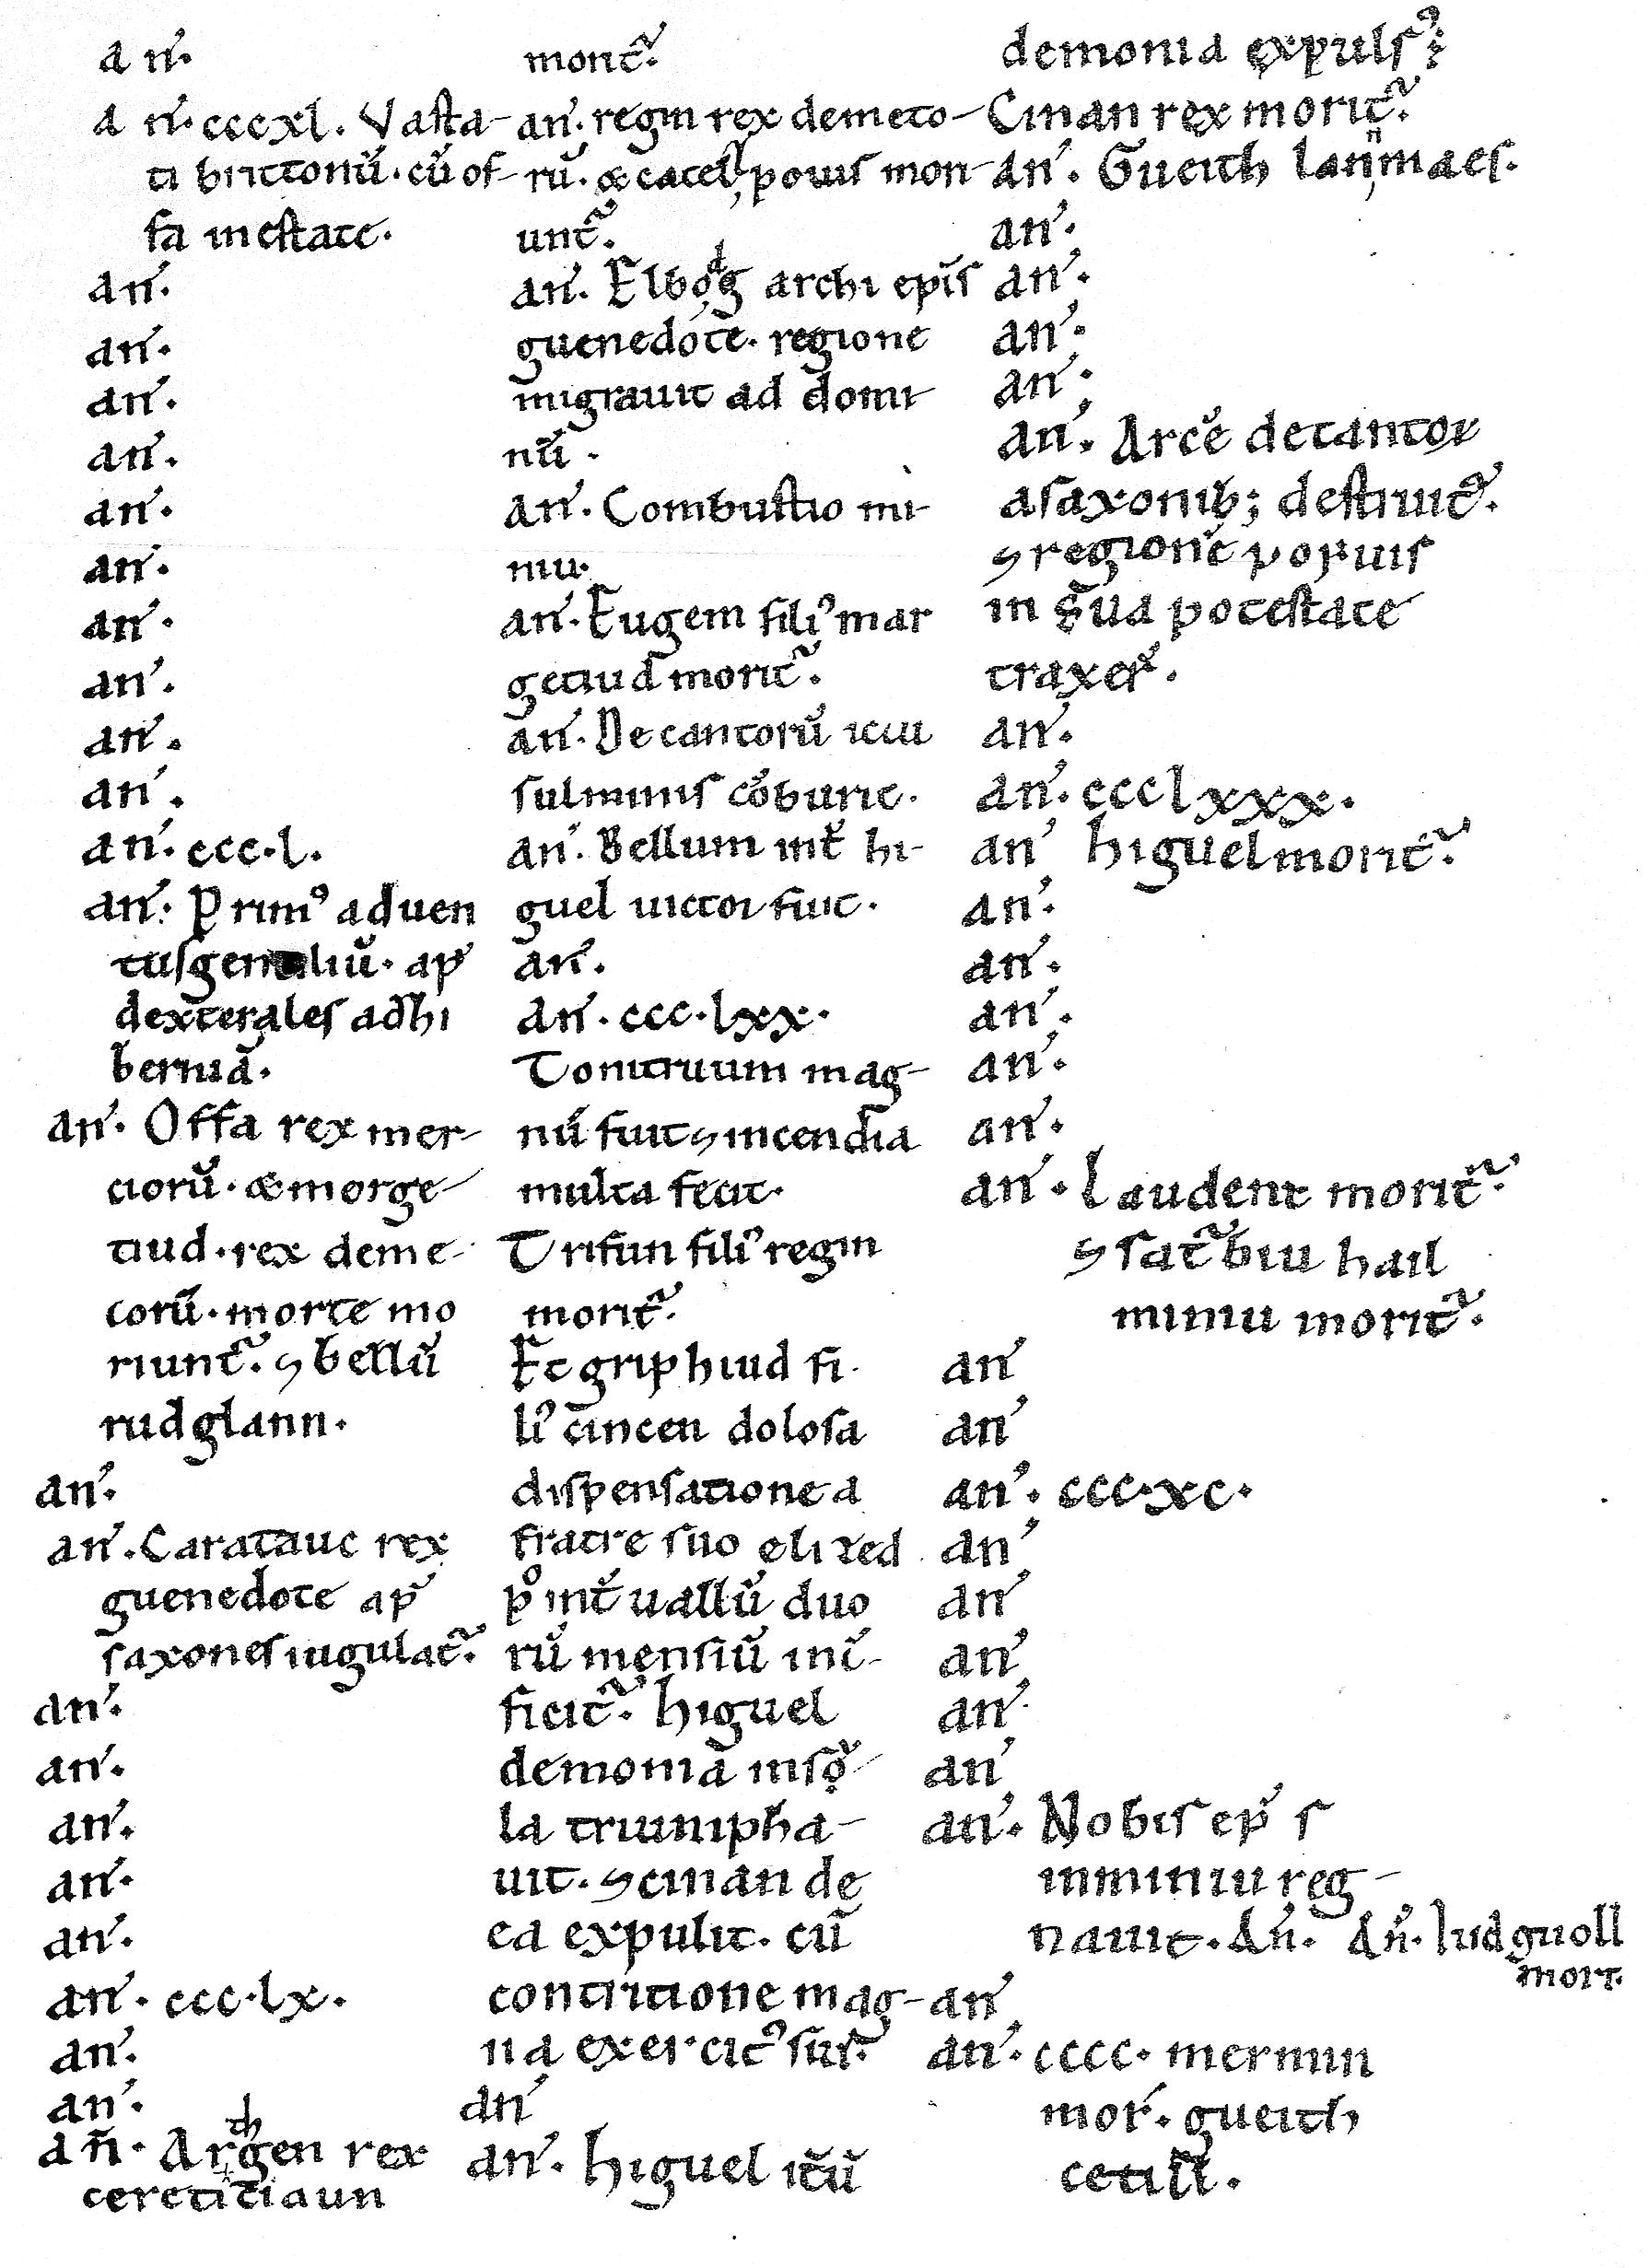 an̄.
an̄. cccxl. Vasta-
ti brittonū. cū of-
fa in estate.
an̄.
an̄.
an̄.
an̄.
an̄.
an̄.
an̄.
an̄.
an̄.
an̄.
an̄. ccc.l.
an̄. Prim⁹ aduen
tus gentiliū. ap̄
dexterales ad hi
berniā.
an̄. Offa rex mer-
ciorū. & morge-
tiud. rex deme-
torū. morte mo
riunt᷑. ⁊ bellū
rudglann.
an̄.
an̄. Caratauc rex
guenedote ap̄
saxones iugulat᷑.
an̄.
an̄.
an̄.
an̄.
an̄.
an̄. ccc.lx.
an̄.
an̄.
an̄. Arthgen rex
cereticiaun
morit᷑.
an̄. regin rex demeto-
rū. & catell, pouis mori-
unt᷑.
an̄. Elbodg archi epīs
guenedote. regione
migrauit ad domi-
nū.
an̄. Combustio mi-
niu.
an̄. Eugem fili⁹ mar
getiud morit᷑.
an̄. Decantorū ictu
fulminis cōburit.
an̄. Bellum int̄ hi-
guel uictor fuit.
an̄.
an̄. ccc.lxx.
Tonitruum mag-
nū fuit ⁊ incendia
multa fecit.
Trifun fili⁹ regin
morit᷑.
Et griphiud fi.
li⁹ cincen dolosa
dispensatione a
fratre suo elized
p⁹ int̄ uallū duo
rū mensiū int̄-
ficit᷑. higuel
de monia inso-
la triumpha-
uit. ⁊ cinan de
ea expulit. cū
contritione mag-
na exercit⁹ sui.
an̄
an̄. higuel itū
de monia expuls⁹;
Cinan rex morit᷑.
an̄. Gueith lannmaes.
an̄.
an̄.
an̄.
an̄.
an̄. Arcē detantor
a saxonib; destruit᷑.
⁊ regionē poyuis
in sua potestate
traxer̄.
an̄.
an̄. ccclxxx.
an̄ higuel morit᷑.
an̄.
an̄.
an̄.
an̄.
an̄.
an̄. laudent morit᷑.
⁊ sat᷑biu hail
miniu morit᷑.
an̄
an̄
an̄. ccc.xc.
an̄
an̄
an̄
an̄
an̄
an̄. Nobis ep̄ s
in miniu reg-
nauit. An̄. An̄. iudguoll
mort.
an̄
an̄. cccc. mermin
mor̄. gueith
cetill.